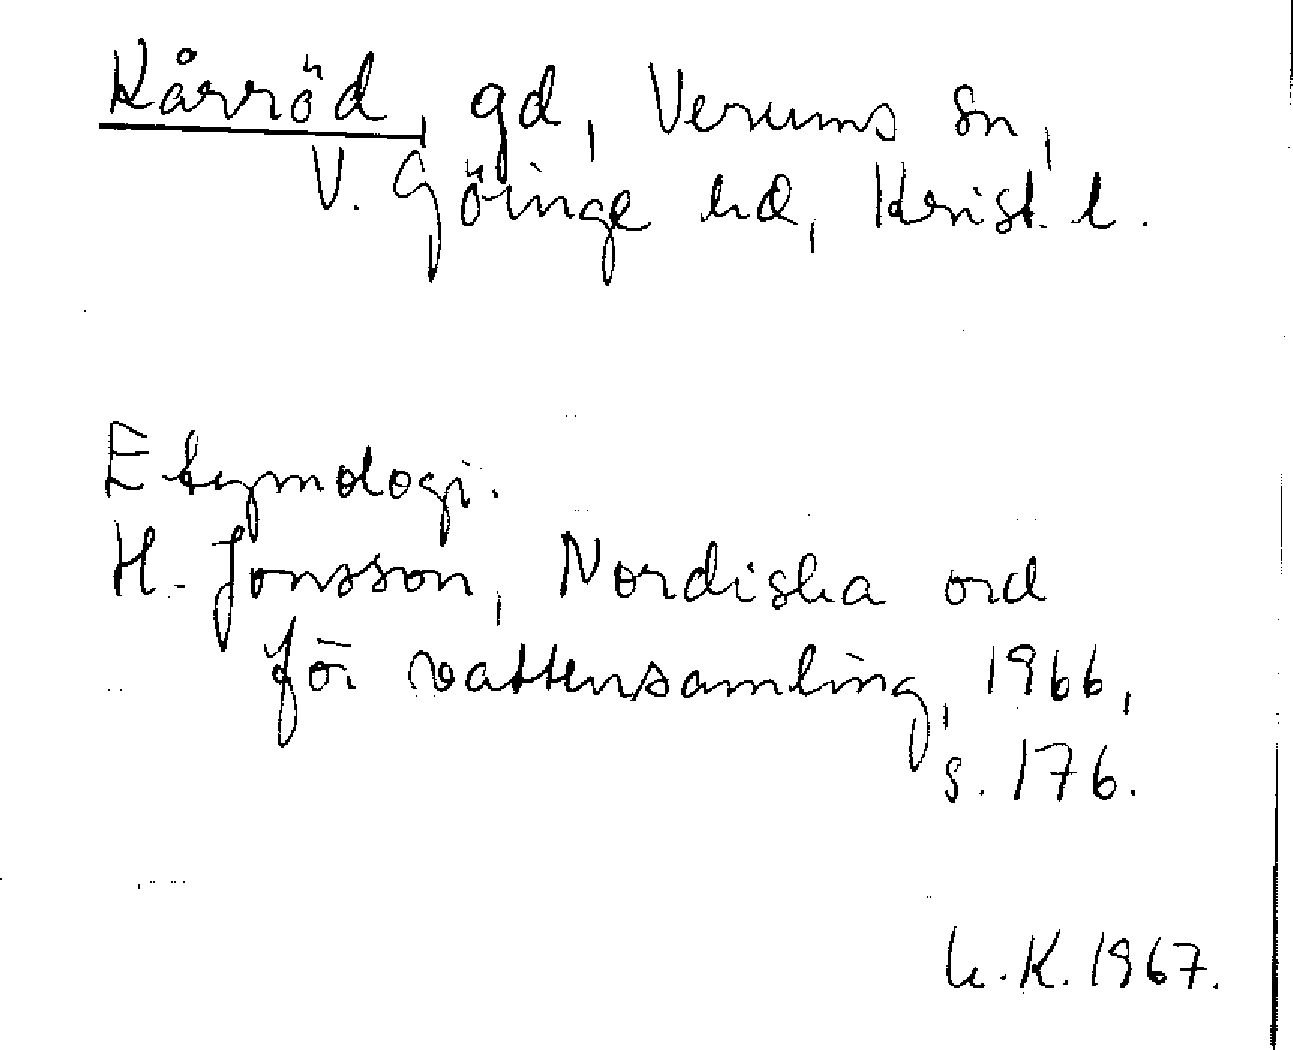 Kårröd, gd, Verums sn,
V. Göinge hd, Krist. l.
Etymologi.
H. Jonsson, Nordiska ord
för vattensamling, 1966,
s. 176.
K. 1967.